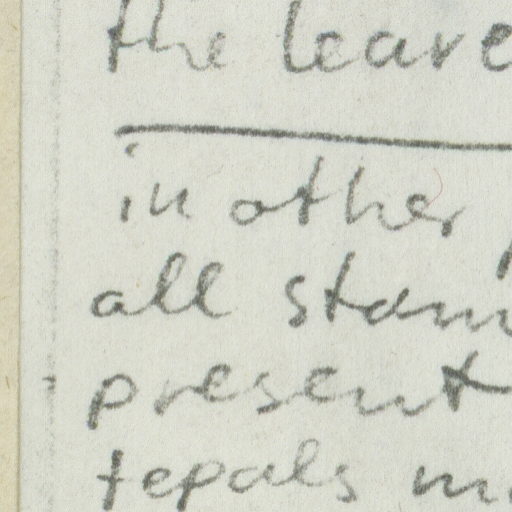 the leave
in other
all stam
present
tepals